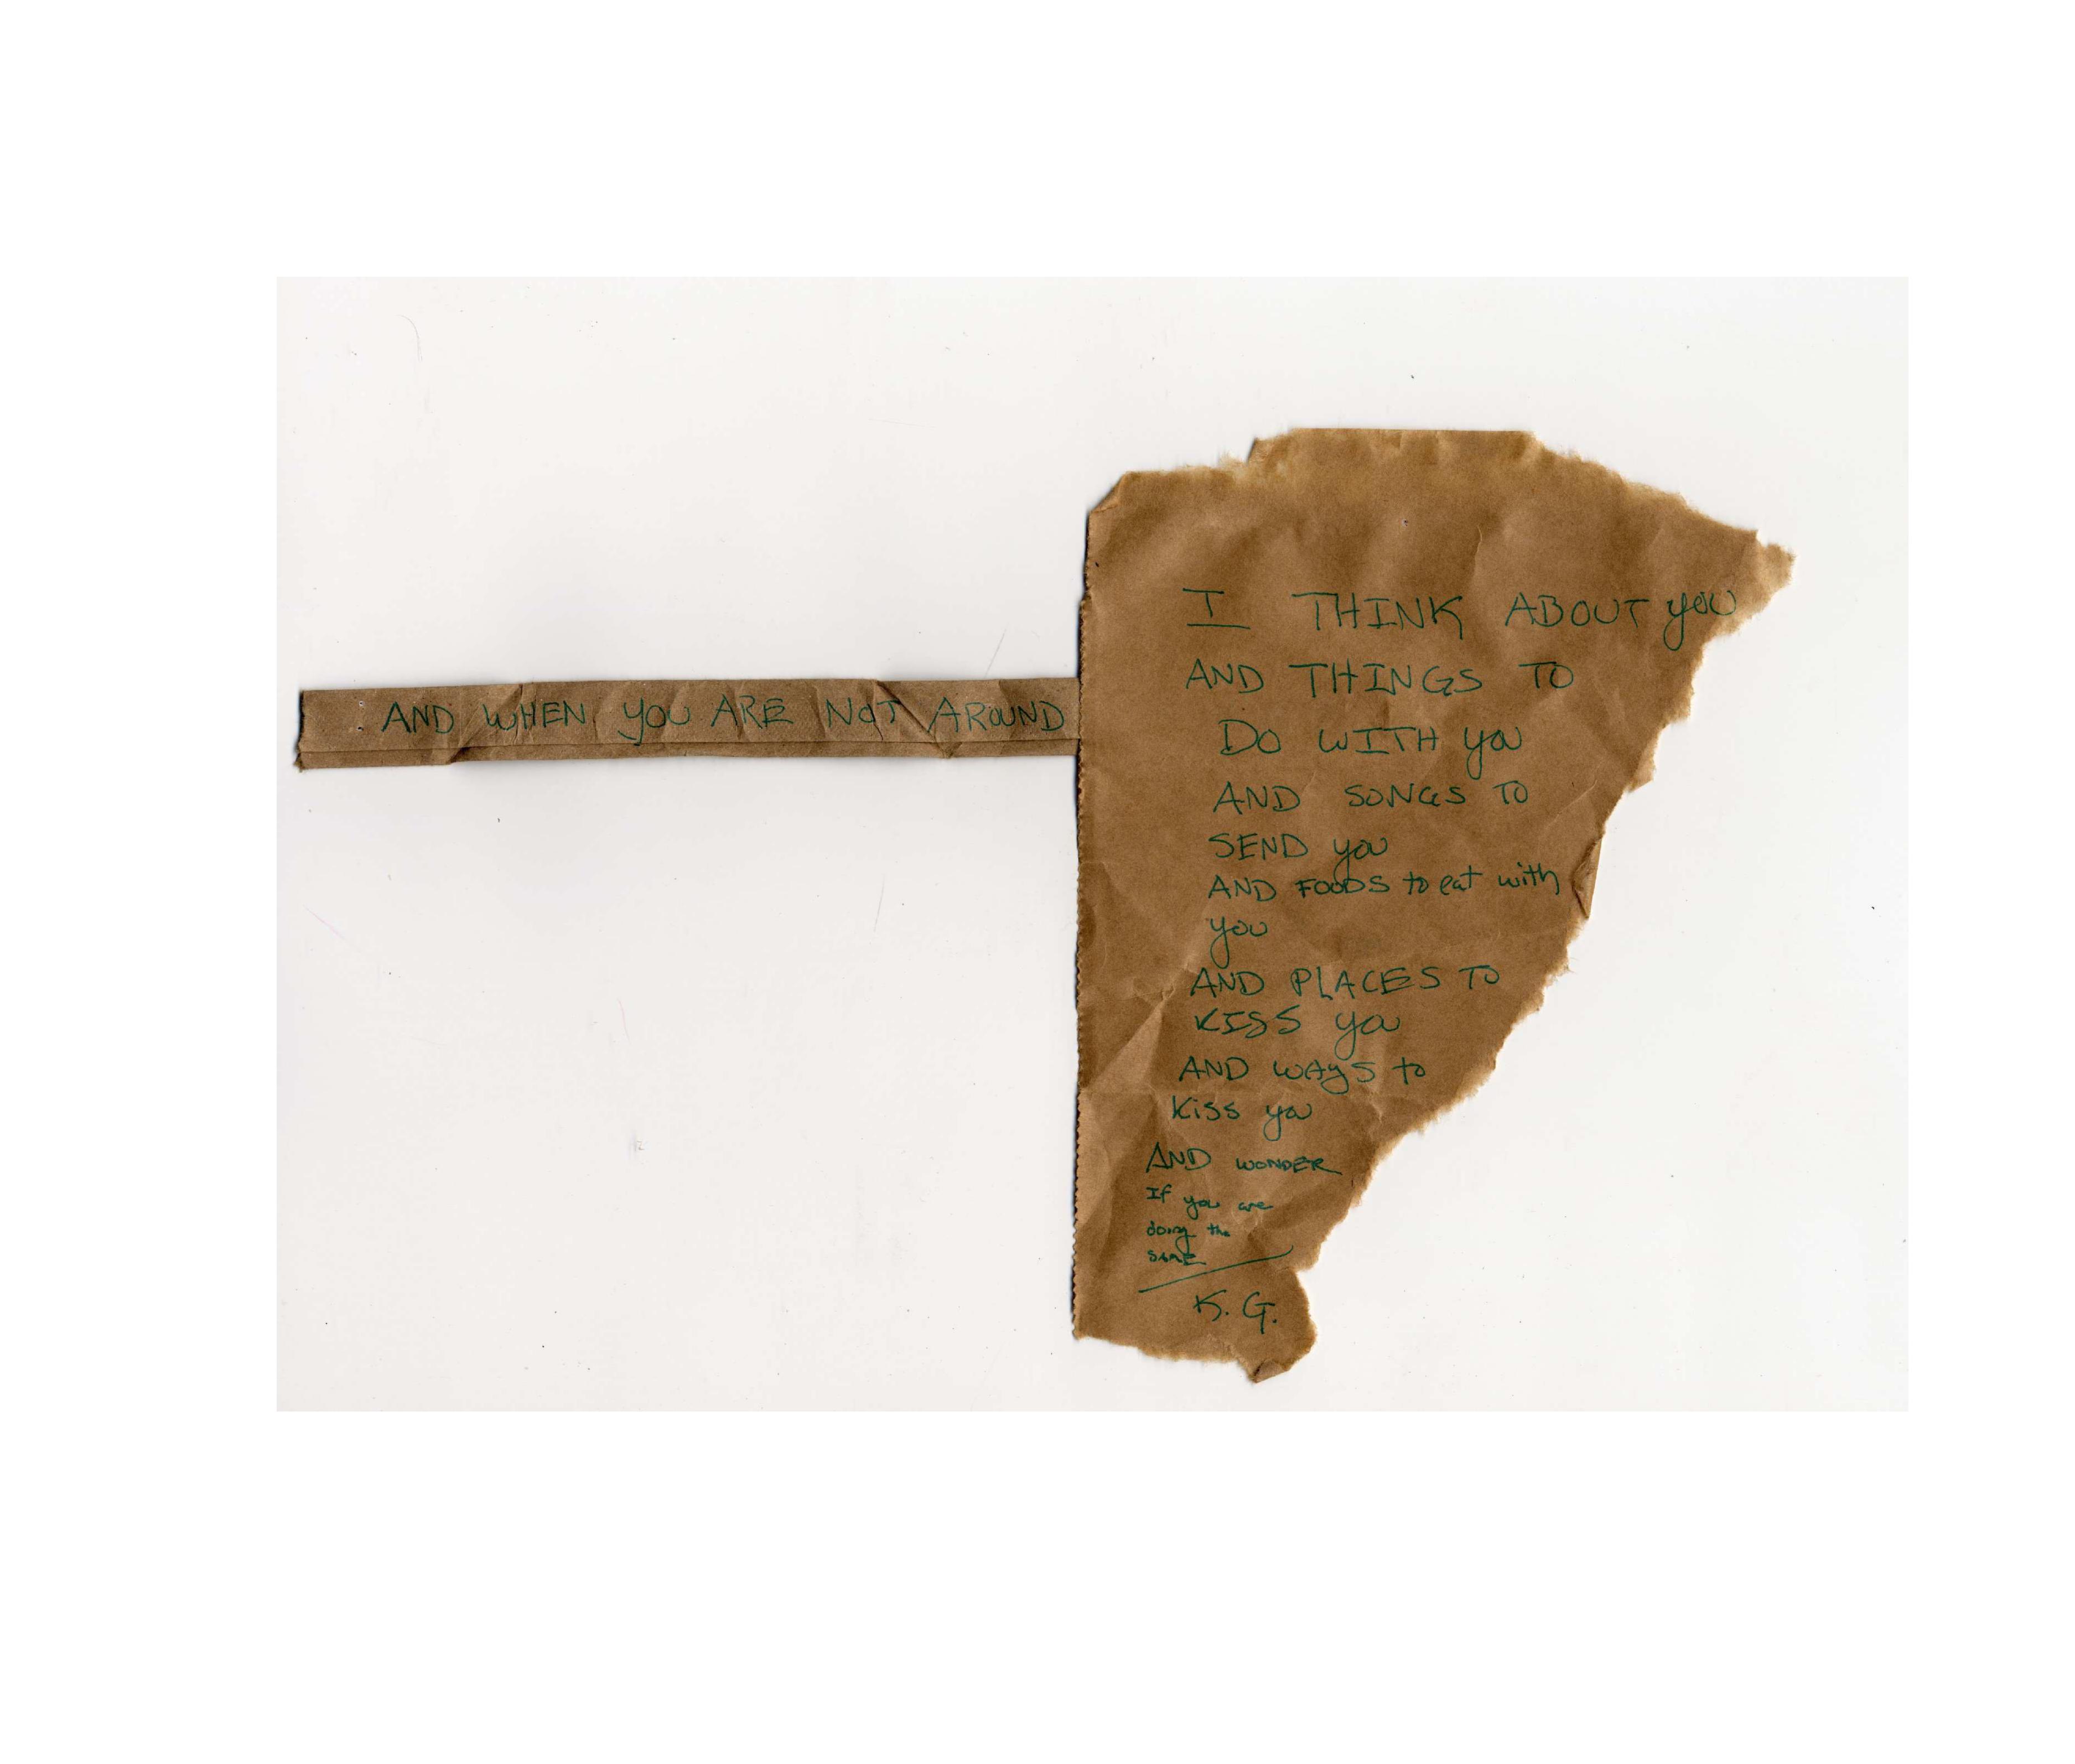 AND WHEN YOU ARE NOT AROUND
I THINK ABOUT you
AND THINGS TO
DO WITH you
AND SONGS TO
SEND you
AND FOODS to eat with
you
AND PLACES TO
KISS you
AND WAYS to
Kiss you
AND WONDER
If you are
doing the
SAME
K.G.